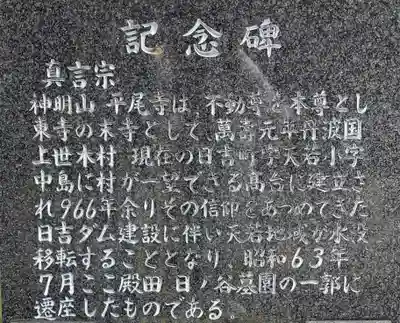 記念碑
真言宗
神明山 平尾寺は、不動尊を本尊とし
東寺の末寺として、萬壽元年丹波国
上世木村 現在の日吉町字天若小字
中島に村が一望できる高台に建立さ
れ966年余りその信仰をあつめてきた
日吉ダム建設に伴い天若地域が水没
移転することとなり、昭和63年
7月ここ殿田日ノ谷墓園の一郭に
遷座したものである。